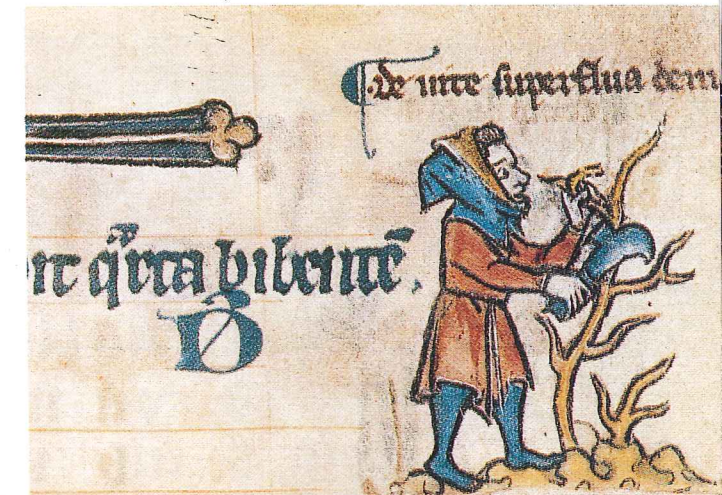 ¶ de uite superflua dem
it qͣrta bibentē.